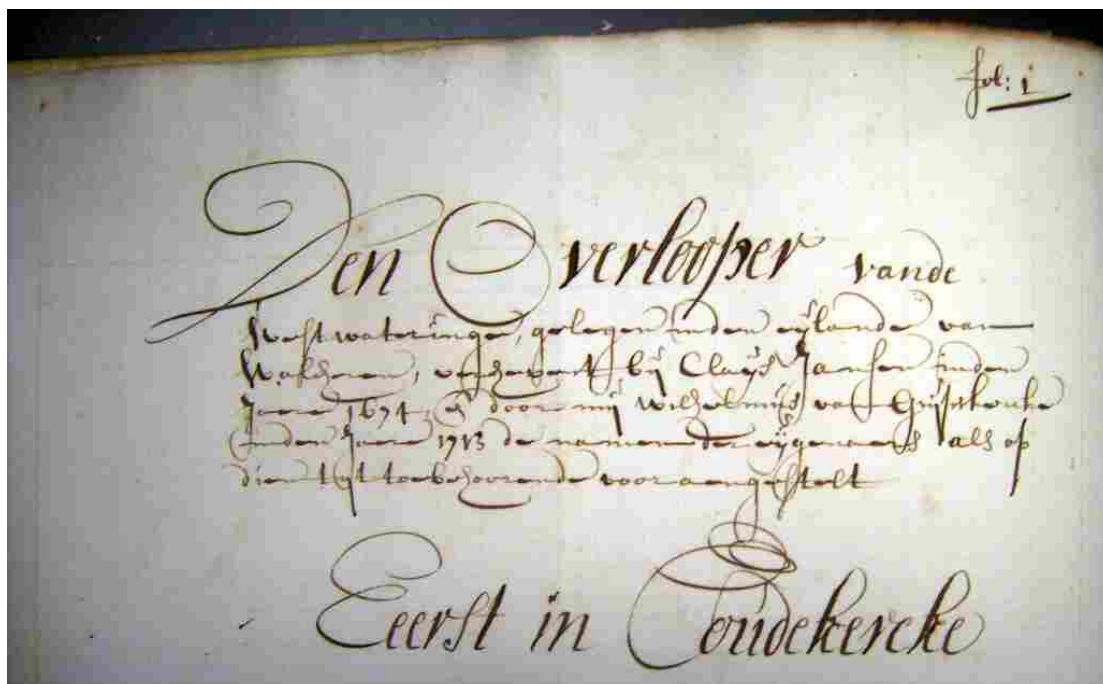 fol: 1
Den Overlooper vande
Westwateringe, gelegen inden eylande van
Walcheren, verheuert bij Claijs Jansen inden
Jaere 1674, en door mij Wilhelmus van
inden Jaere 1713 de namen der eijgenaers als op
dien tijt toebehoorende voor aengestelt
Eerst in Coudekercke